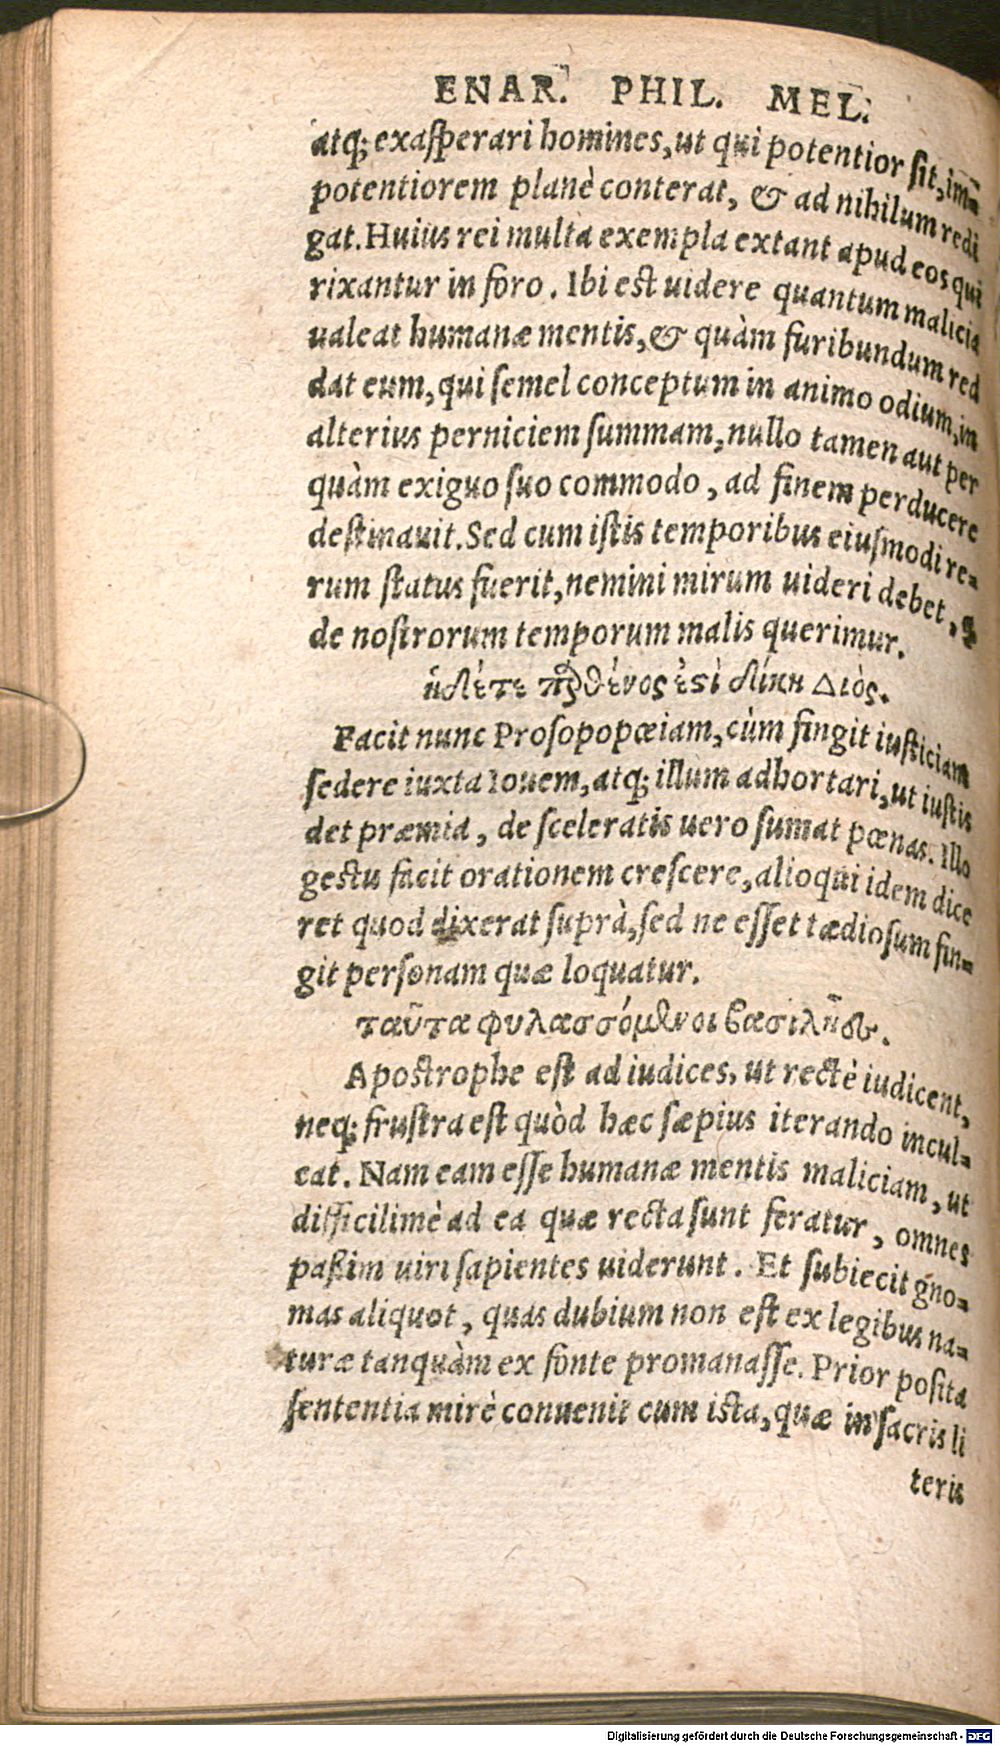 ENAR. PHIL. MEL.
atq; exasperari homines, ut qui potentior sit, im-
potentiorem planè conterat, & ad nihilum redi
gat. Huius rei multa exempla extant apud eos qui
rixantur in foro. Ibi est uidere quantum malicia
ualeat humanæ mentis, & quàm furibundum red
dat eum, qui semel conceptum in animo odium, in
alterius perniciem summam, nullo tamen aut per
quàm exiguo suo commodo, ad finem perducere
destinauit. Sed cum istis temporibus eiusmodi re-
rum status fuerit, nemini mirum uideri debet, ꝙ
de nostrorum temporum malis querimur.
ἡ δέ τε παρθένος ἐστὶ δίκη Διὸς.
Facit nunc Prosopopœiam, cùm fingit iusticiam
sedere iuxta Iouem, atq; illum adhortari, ut iustis
det præmia, de sceleratis uero sumat pœnas. Illo
gestu facit orationem crescere, alioqui idem dice
ret quod dixerat suprà, sed ne esset tædiosum fin-
git personam quæ loquatur.
ταῦτα φυλασσόμενοι βασιλῆες.
Apostrophe est ad iudices, ut rectè iudicent,
neq; frustra est quòd hæc sæpius iterando incul-
cat. Nam eam esse humanæ mentis maliciam, ut
difficilimè ad ea quæ recta sunt feratur, omnes
paßim uiri sapientes uiderunt. Et subiecit gno-
mas aliquot, quas dubium non est ex legibus na-
turæ tanquàm ex fonte promanasse. Prior posita
sententia mirè conuenit cum ista, quæ in sacris li
teris
Digitalisierung gefördert durch die Deutsche Forschungsgemeinschaft - DFG